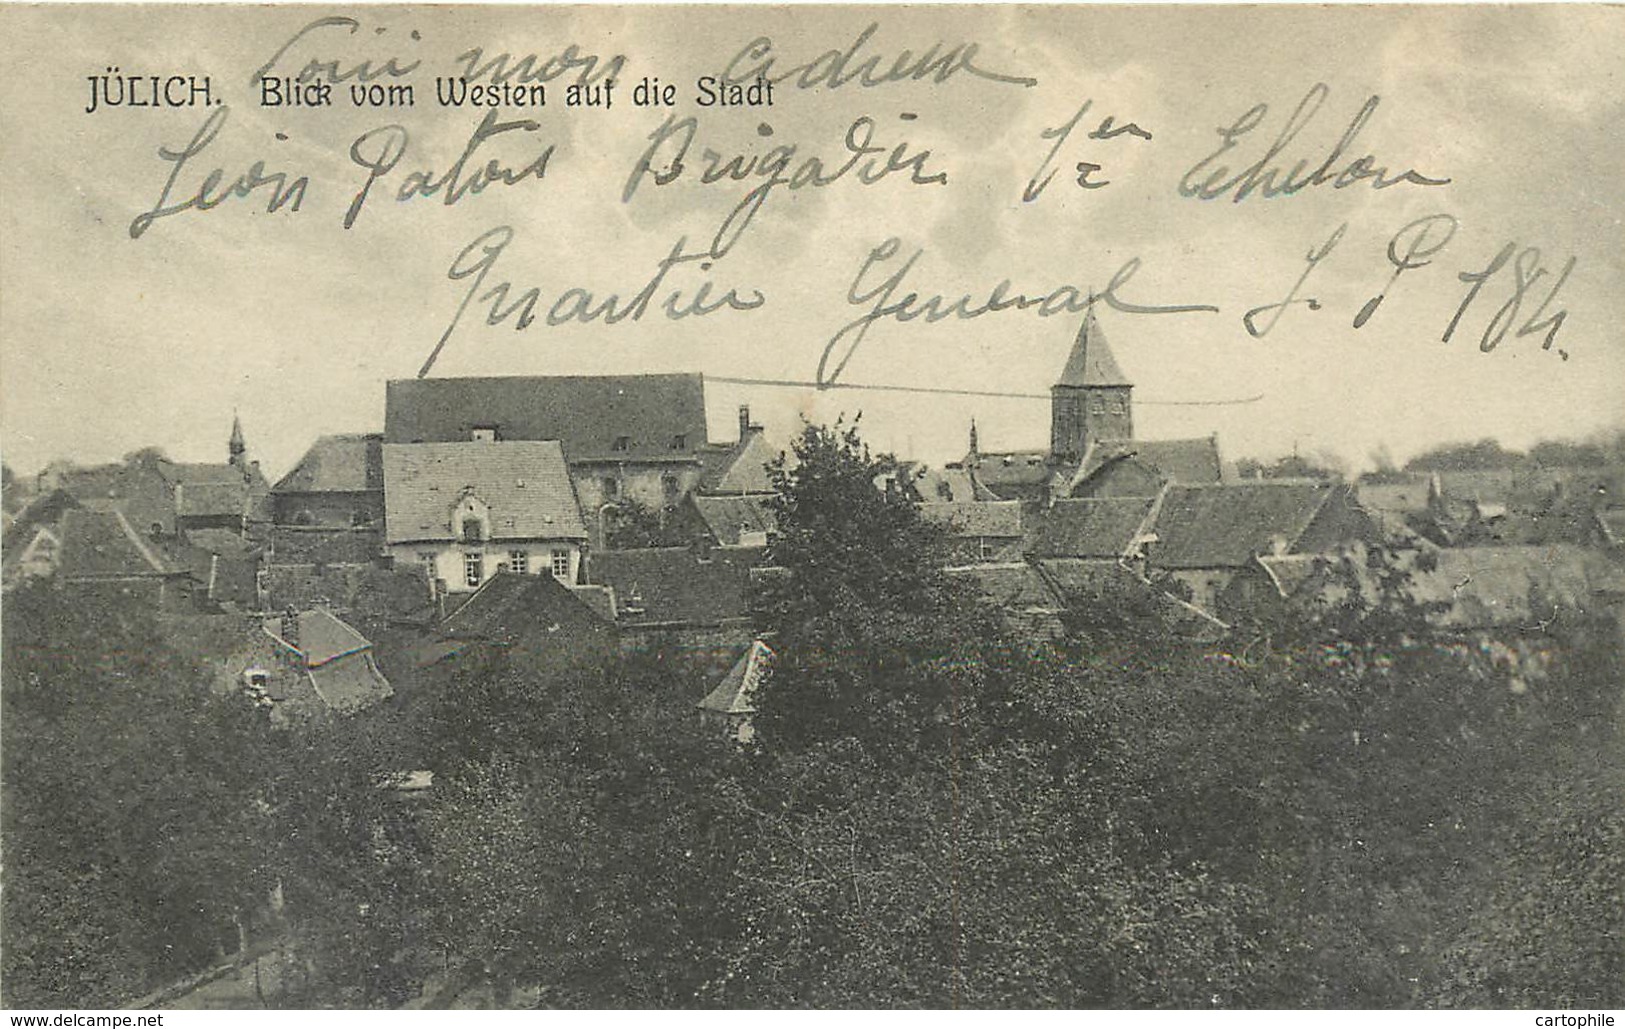 Voici mon adresse
JÜLICH. Blick vom Westen auf die Stadt
Léon Patois Brigadier 1er Echelon
Quartier General S. P 184.
www.delcampe.net
cartophile